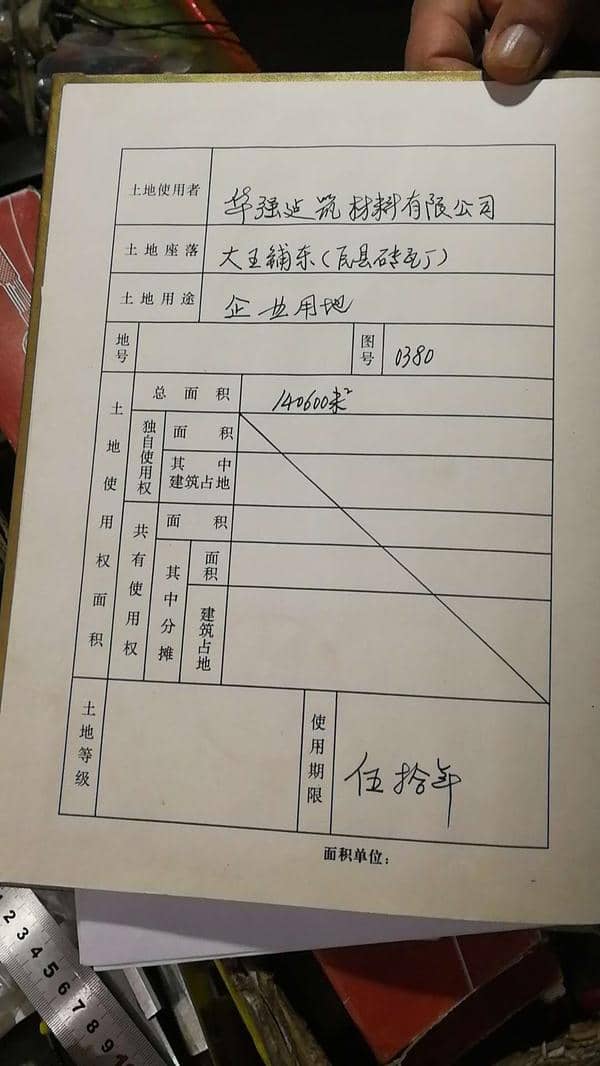 土地使用者 华强建筑材料有限公司
土地座落 大王铺东(瓦县砖瓦厂)
土地用途 企业用地
地号 图号 0380
土地使用权面积
总面积 140600米²
独自使用权
面积
其中建筑占地
共有使用权
面积
其中分摊
面积
建筑占地
土地等级 使用期限 伍拾年
面积单位:
1 2 3 4 5 6 7 8 9 10